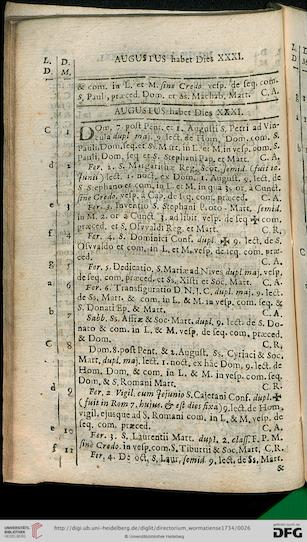 L. D. AUGUSTUS habet Dies XXXI.
D. M.
& com. in L. et M. sine Credo. vesp. de seq. com.
S. Pauli, præced. Dom. et Ss. Machab. Matt. C. A.
AUGUSTUS habet Dies XXXI.
C 1 Dom. 7. post Pent. et 1. Augusti S. Petri ad Vin-
cula dupl. maj. 9. lect. de Hom. Dom. com. S.
Pauli, Dom. seq. et Ss. Matt. in L. et M. in vesp. com. S.
Pauli, Dom. seq. et S. Stephani Pap. et Matt. C. A.
d 2 Fer. 2. S. Reg. Scot. semid. (fuit 10.
Junii) lect. 1. noct. ex Dom. 1. August. 9. lect. de
S. Stephano et com. in L. et M. in qua 3. or. a Cunct.
sine Credo. vesp. a Cap. de seq. com. præced. C. A.
e 3 Fer. 3. Inventio S. Stephani Proto-Matt. semid.
in M. 2. or. a Cunct. 3. ad libit. vesp. de seq. com.
præced. et S. Osvvaldi Reg. et Matt. C. R.
f 4 Fer. 4. S. Dominici Conf. dupl. 9. lect. de S.
Osvvaldo et com. in L. et M. vesp. de seq. com. præ-
ced. C. A.
g 5 Fer. 5. Dedicatio, S. Mariæ ad Nives dupl. maj. vesp.
de seq. com. præced. et Ss. Xisti et Soc. Matt. C. A.
a 6 Fer. 6. Transfiguratio D. N. J. C. dupl. maj. 9. lect.
de Ss. Matt. & com. in L. & M. in vesp. com. seq. &
S. Donati Ep. & Matt. C. A.
b 7 Sabb. Ss. Afræ & Soc. Matt. dupl. 9. lect. de S. Do-
nato & com. in L. & M. vesp. de seq. com. præced.
& Dom. C. R.
C 8 Dom. 8. post Pent. & 2. August. Ss. Cyriaci & Soc.
Matt. dupl. maj. lect. 1. noct. ex hac Dom. 9. lect. de
Hom. Dom. & com. in L. & M. in vesp. com. seq.
Dom. & S. Romani Matt. C. R.
d 9 Fer. 2. Vigil. cum Jejunio S. Cajetani Conf. dupl.
(fuit in Rom 7. hujus. & est dies fixa) 9. lect. de Hom.
vigil. ejusque ad S. Romani com. in L. & M. vesp. de
seq. com. præced. C. A.
e 10 Fer. 3. S. Laurentii Matt. dupl. 2. class. F. P. M.
sine Credo. in vesp. com. S. Tiburtii & Soc. Matt. C. R.
f 11 Fer. 4. De oct. S. Laur. semid. 9. lect. de Ss. Matt.
&
UNIVERSITÄTS-
BIBLIOTHEK
HEIDELBERG
http://digi.ub.uni-heidelberg.de/diglit/directorium_wormatiense1734/0026
© Universitätsbibliothek Heidelberg
gefördert durch die
DFG